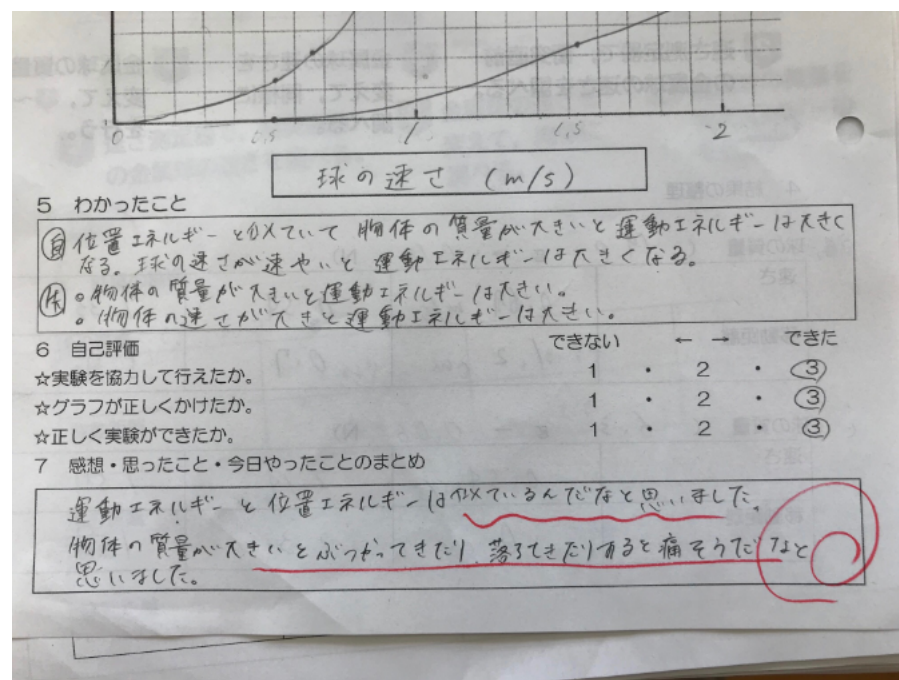 0 0.5 1 1.5 2
球の速さ (m/s)
5 わかったこと
自 位置エネルギーと似ていて 物体の質量が大きいと運動エネルギーは大きく
なる。球の速さが速やいと運動エネルギーは大きくなる。
。物体の質量が大きいと運動エネルギーは大きい。
。物体の速さが大きと運動エネルギーは大きい。
6 自己評価 できない ← → できた
☆実験を協力して行えたか。 1 ・ 2 ・ 3
☆グラフが正しくかけたか。 1 ・ 2 ・ 3
☆正しく実験ができたか。 1 ・ 2 ・ 3
7 感想・思ったこと・今日やったことのまとめ
運動エネルギーと位置エネルギーは似ているんだなと思いました。
物体の質量が大きいとぶつかってきたり、落ちてきたりすると痛そうだなと
思いました。